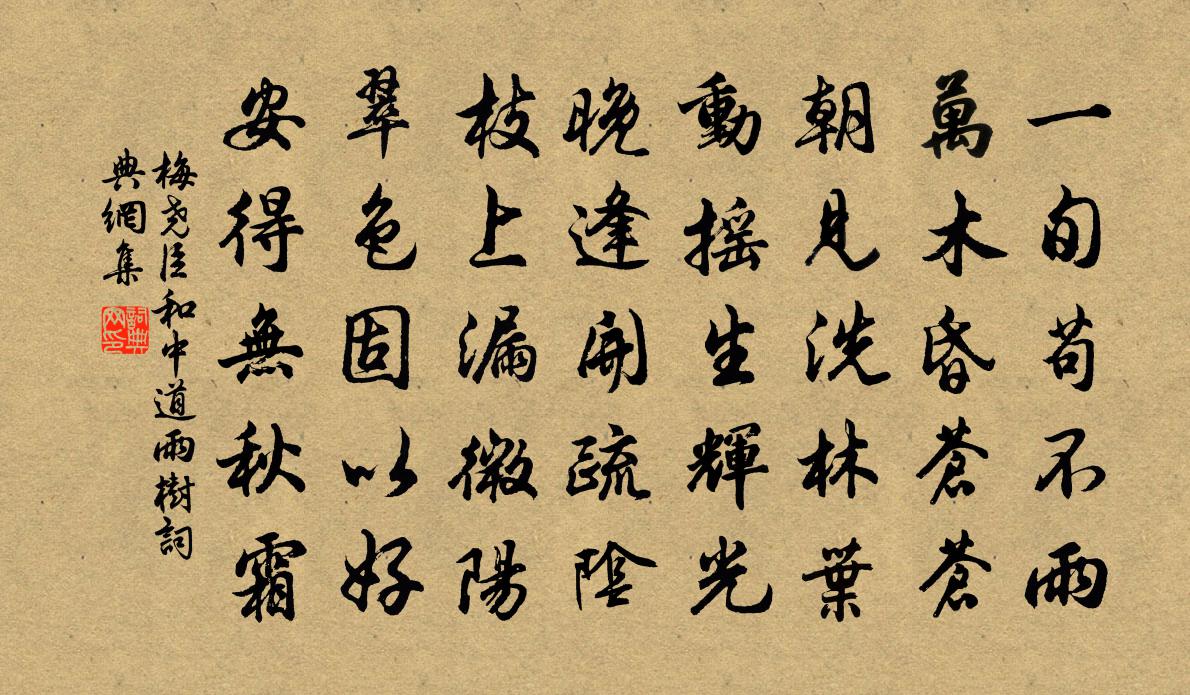 一旬苟不雨
萬木昏蒼蒼
朝見洗林葉
動摇生輝光
晚逢開疏陰
枝上漏微陽
翠色固以好
安得無秋霜
梅尧臣和中道雨樹詞
典網集
詞典
网印